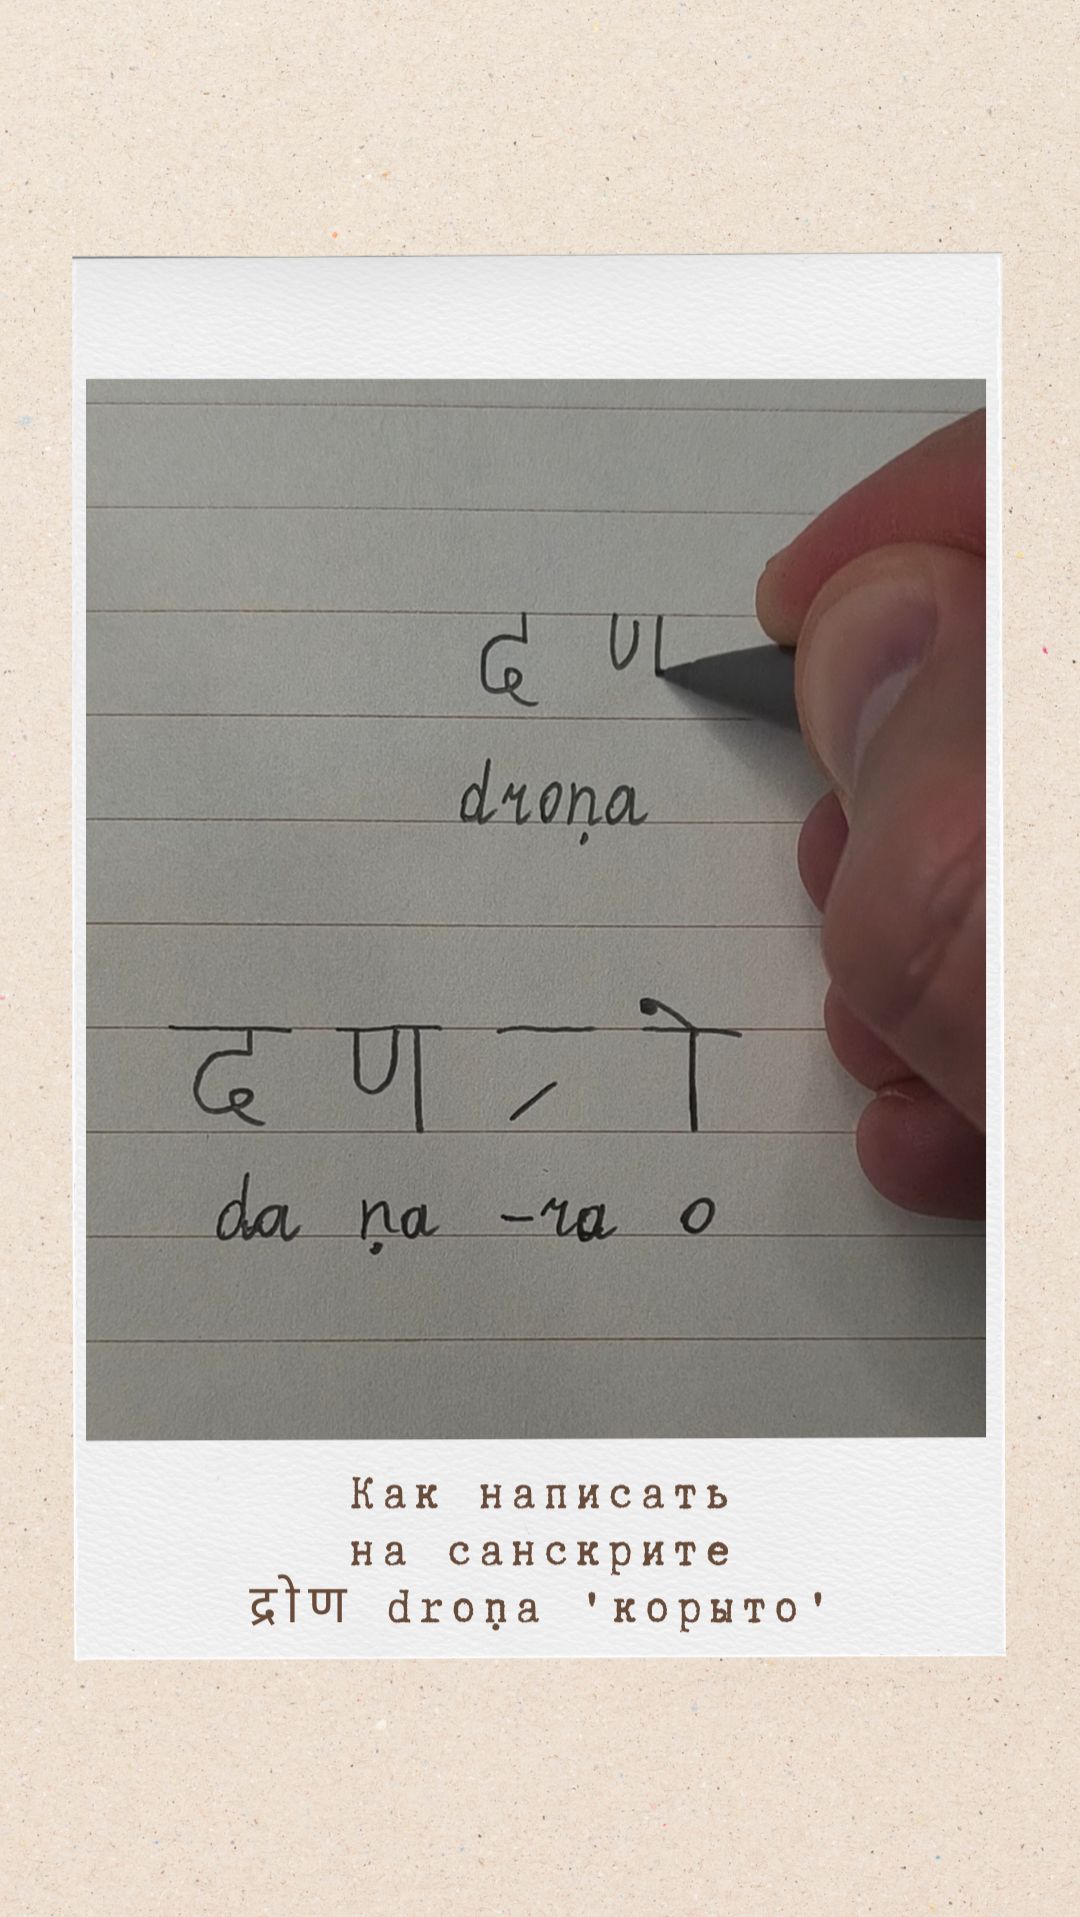 द ण
droṇa
द ण ्र ो
da ṇa -ra o
Как написать
на санскрите
द्रोण droṇa 'корыто'